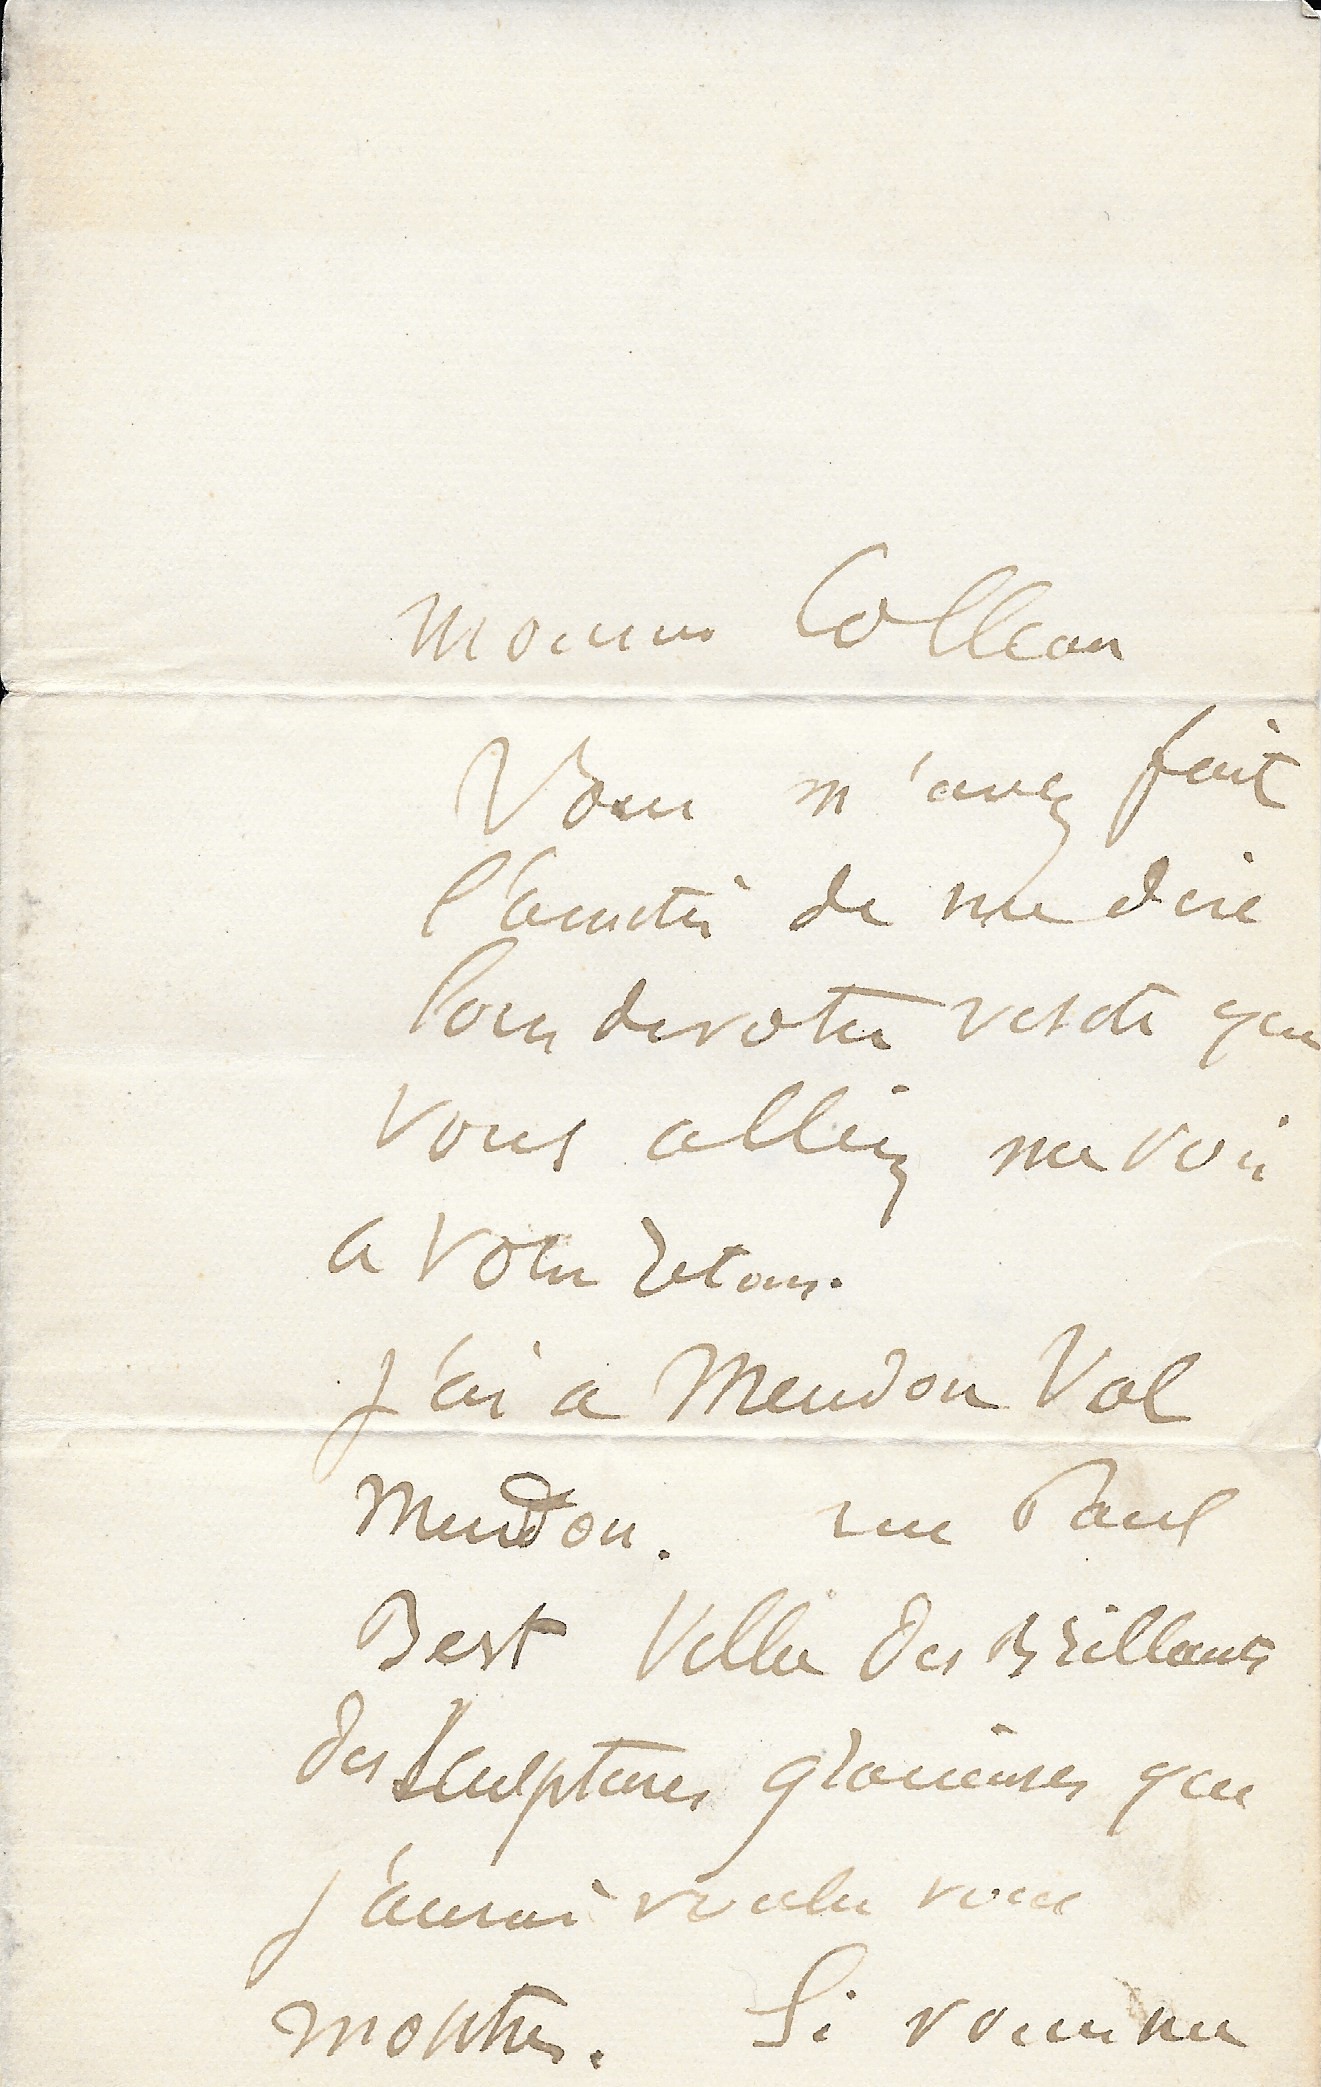 Monsieur Colleau
Vous m'avez fait
l'amitié de me dire
lors de votre visite que
vous alliez me voir
a votre retour.
J'ai a Meudon Val
Meudon. rue Paul
Bert Villa des Brillants
des sculptures gracieuses que
j'aurai voulu vous
montrer. Si vous me